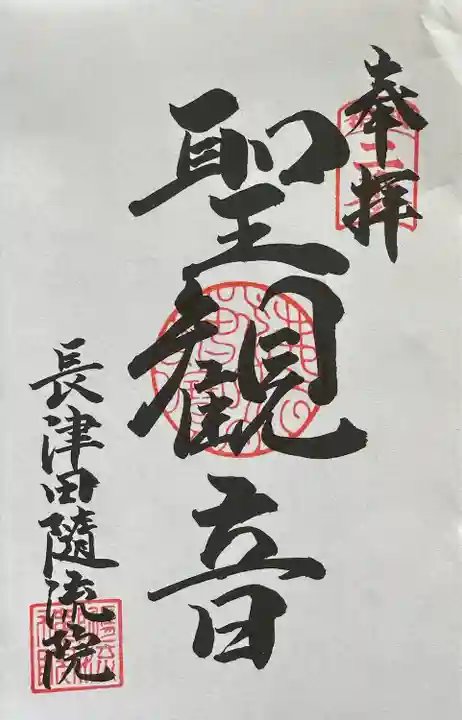 奉拝
聖観音
長津田随流院